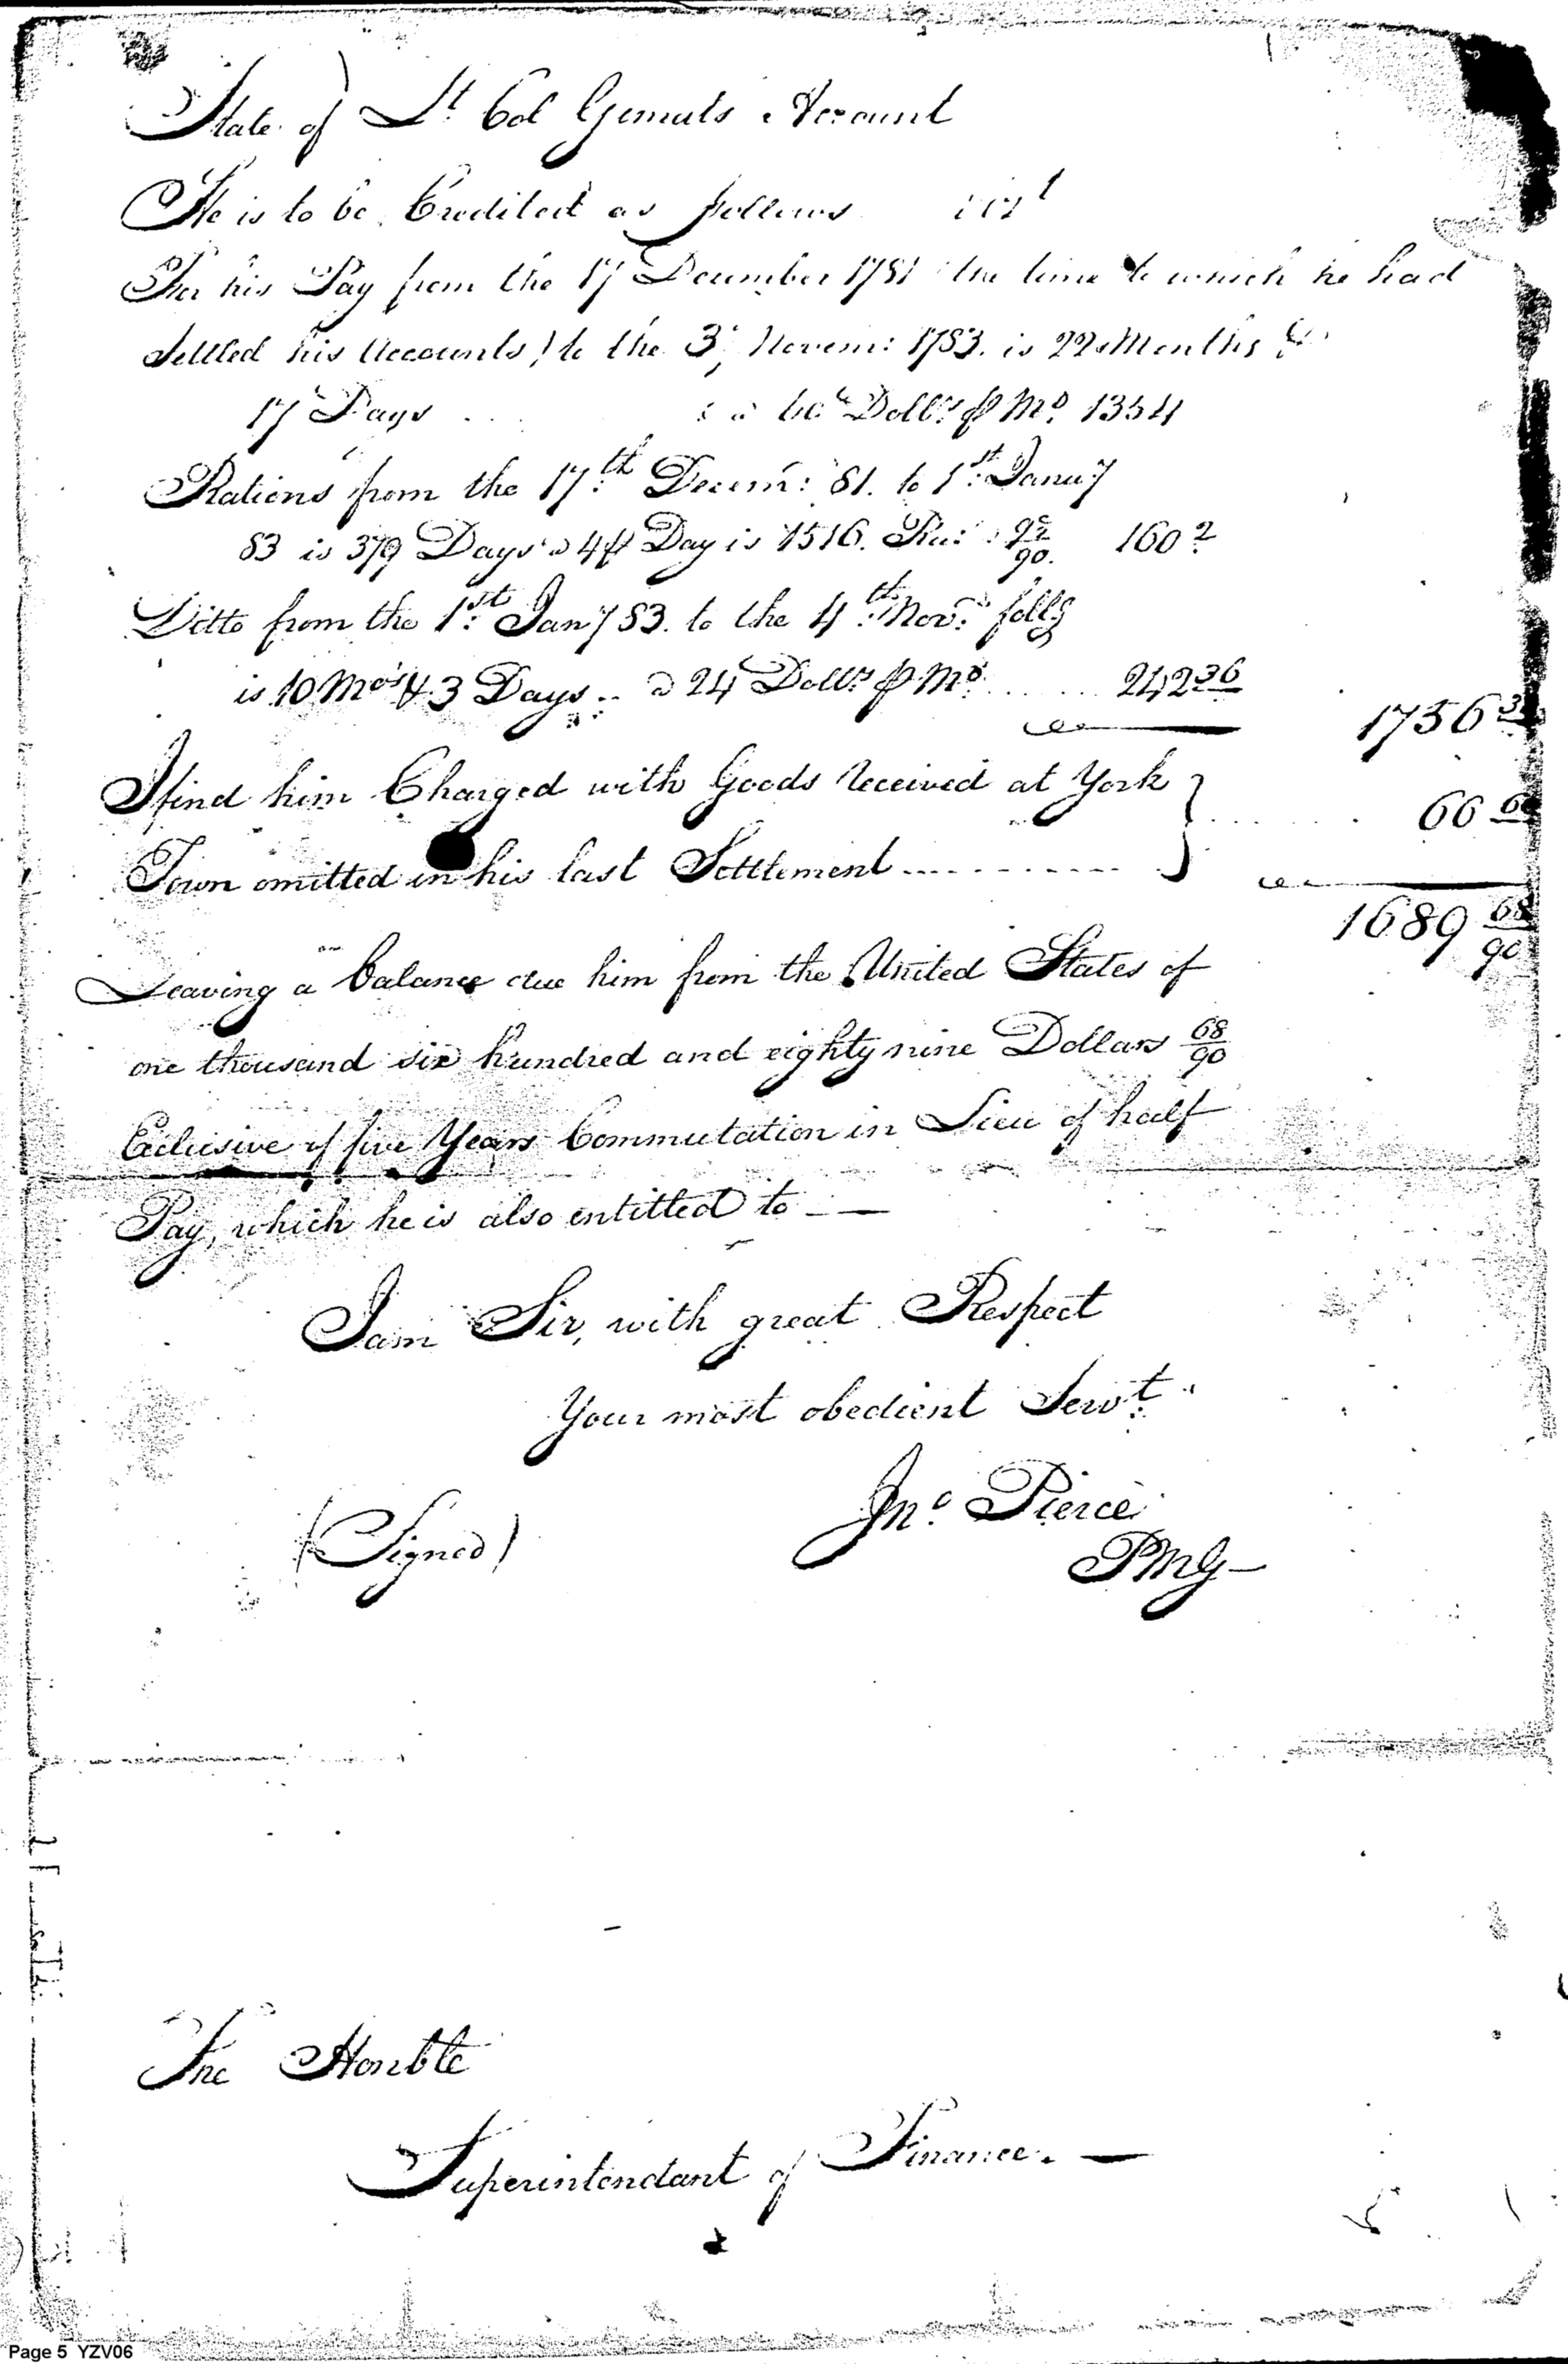 State of Lt. Col Gimats Account
He is to be Credited as follows vizt
For his Pay from the 17 December 1781 the time to which he had
Settled his Accounts) to the 3d, Novem: 1783. is 22 Months &
17 Days . . . a 60 Dollrs ⅌ Mo. 1354
Rations from the 17.th Decem: 81. to 1st: Januy
83 is 379 Days a 4 ⅌ Day is 1516. Ra: 90. 160 2
Ditto from the 1st: Jany 83. to the 4th: Nov: follg
is 10 Mos & 3 Days .. a 24 Dollrs ⅌ Mo. . . . . . 242 36
1756
I find him Charged with Goods received at York } . . . . . . 66
Town omitted in his last Settlement . . . . . . . . . .
1689 68/90
Leaving a balance due him from the United States of
one thousand six hundred and eighty nine Dollars 68/90
Exclusive of five Years Commutation in Lieu of half
Pay, which he is also entitled to — —
I am Sir, with great Respect
Your most obedient Servt.
Jno. Pierce
(Signed)
PMG —
The Honble
Superintendant of Finance. —
Page 5 YZV06